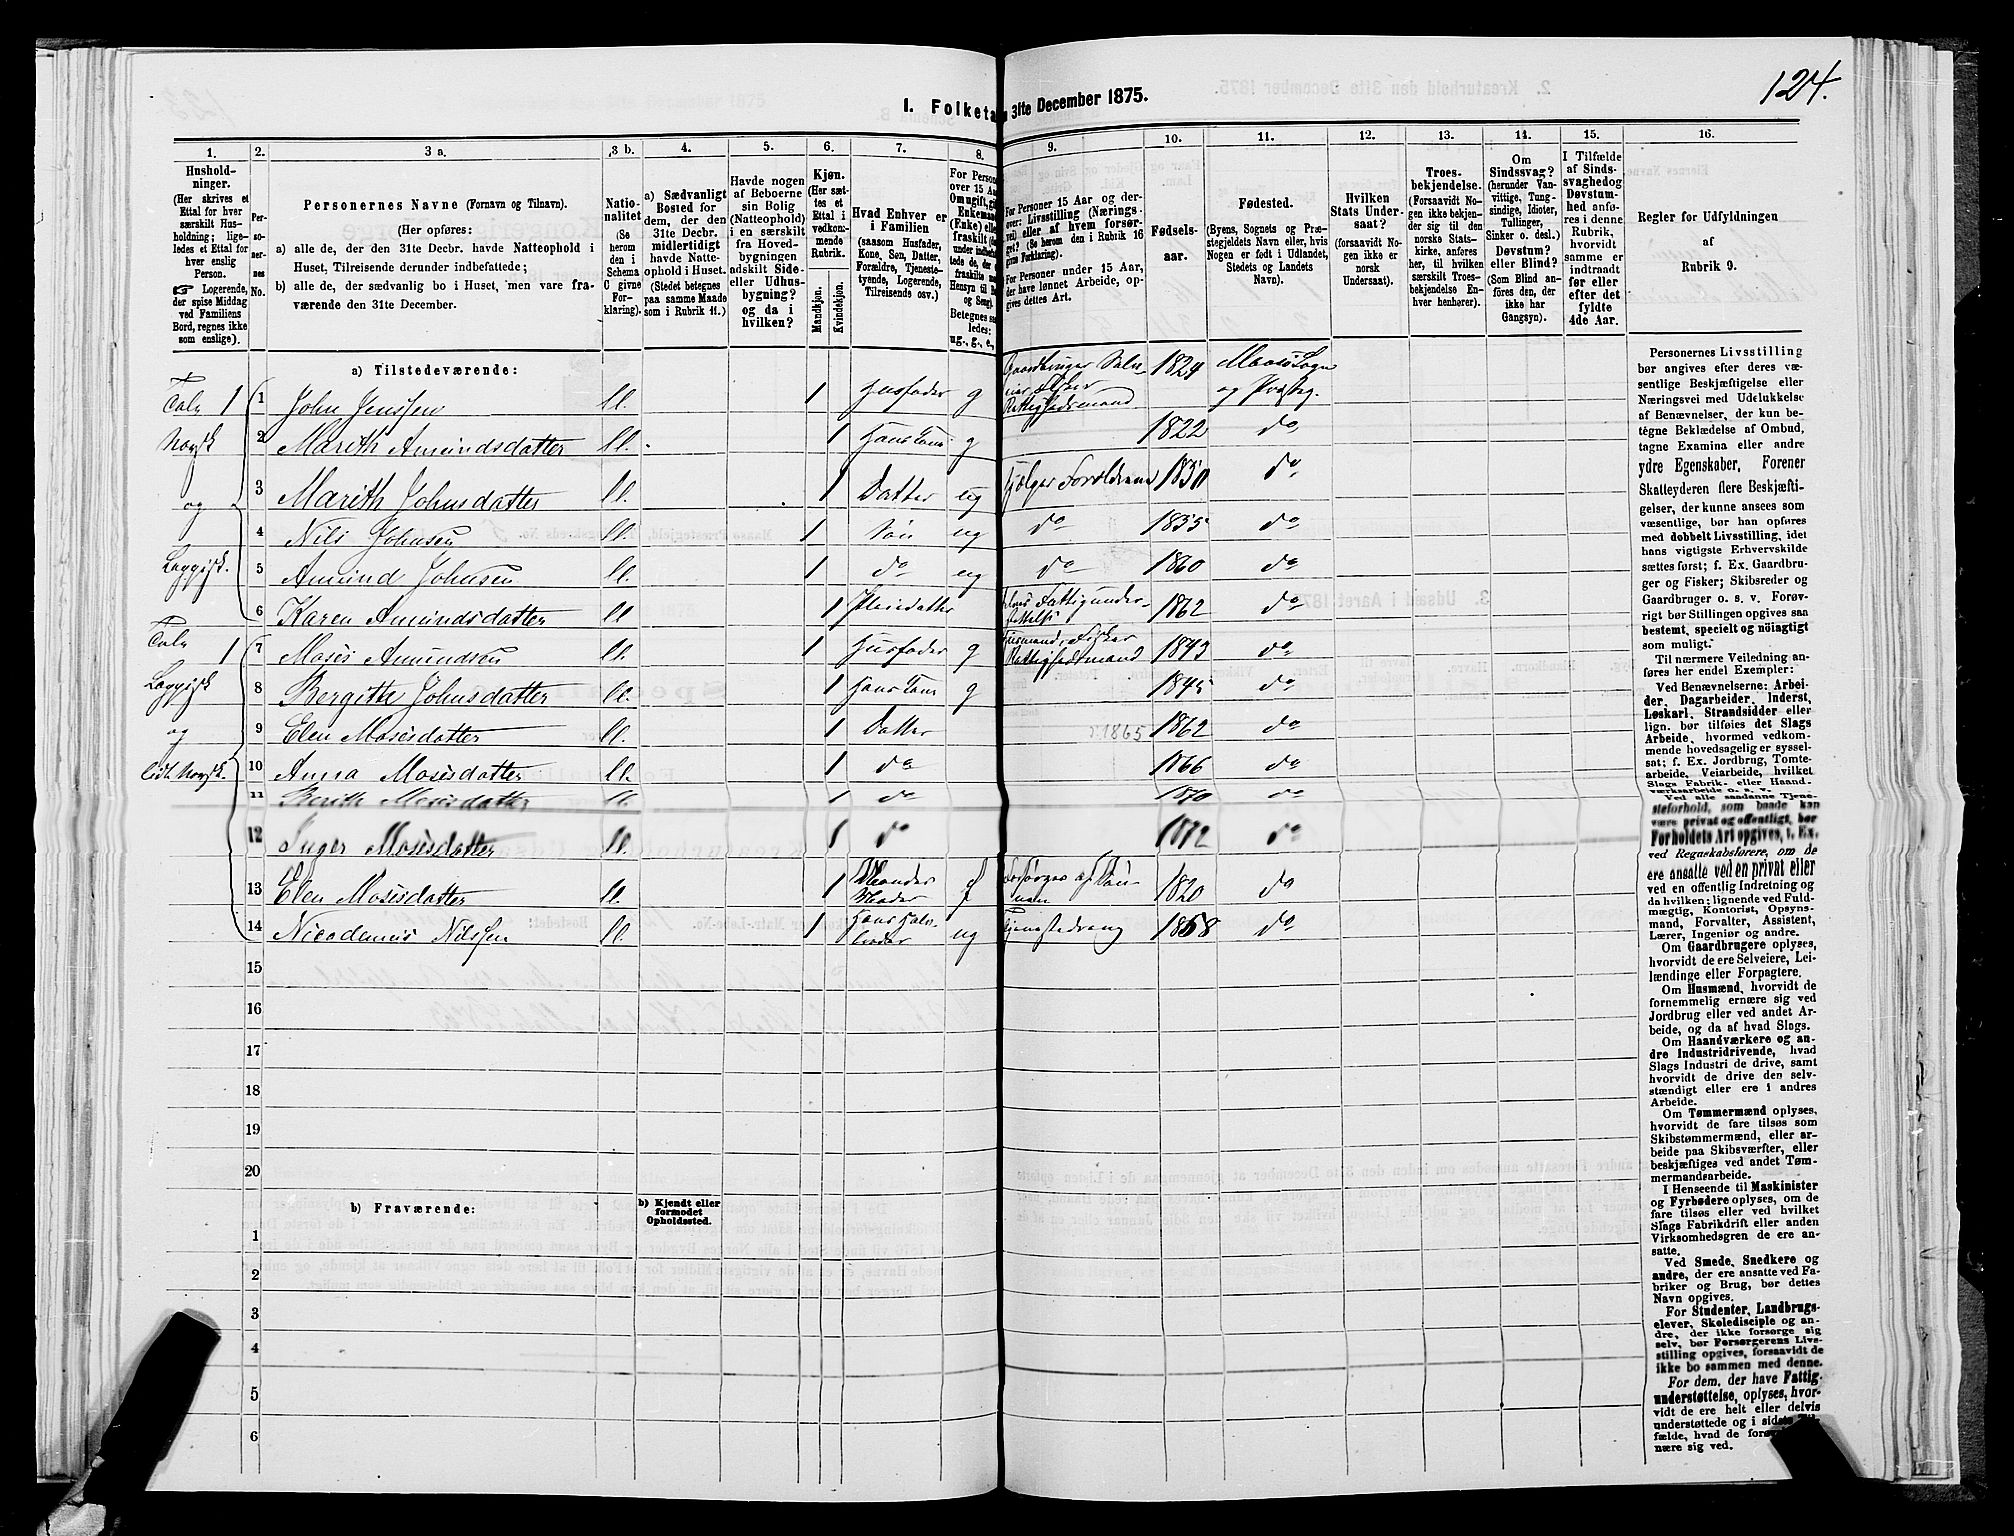 124.
I. Folketa
n 31te December 1875.
1. 2. 3 a. 3 b. 4. 5. 6. 7. 8. 9. 10. 11. 12. 13. 14. 15. 16.
Hushold-
ninger.
(Her skrives et
Ettal for hver
særskilt Hus-
holdning; lige-
ledes et Ettal for
hver enslig
Person.
☞ Logerende,
der spise Middag
ved Familiens
Bord, regnes ikke
som enslige).
Per-
so-
ner-
nes
No.
Personernes Navne (Fornavn og Tilnavn).
(Her opføres:
a) alle de, der den 31te Decbr. havde Natteophold i
Huset, Tilreisende derunder indbefattede;
b) alle de, der sædvanlig bo i Huset, men vare fra-
værende den 31te December.
Natio-
nalitet
(Se
herom
den i
Schema
C givne
For-
klaring).
a) Sædvanligt
Bosted for
dem, der den
31te Decbr.
midlertidigt
havde Natte-
ophold i Huset.
(Stedet betegnes
paa samme Maade
som i Rubrik 11.)
Havde nogen
af Beboerne
sin Bolig
(Natteophold)
i en særskilt
fra Hoved-
bygningen
adskilt Side-
eller Udhus-
bygning?
og da i
hvilken?
Kjøn.
(Her sæt-
tes et
Ettal i
vedkom-
mende
Rubrik.
Mandkjøn.
Kvindekjøn.
Hvad Enhver er
i Familien
(saasom Husfader,
Kone, Søn, Datter,
Forældre, Tjeneste-
tyende, Logerende,
Tilreisende osv.)
For Persone
over 15 Aa
Om ugift, gi
Enkema
(Enke) e
fraskilt
Betegnes saa
ledes:
ug., g., e.,
For Personer 15 Aar og der-
over: Livsstilling (Nærings-
vei) eller af hvem forsør-
get? (Se herom den i Rubrik 16
givne Forklaring).
For Personer under 15 Aar,
der have lønnet Arbeide, op-
gives dettes Art.
Fødsels-
aar.
Fødested.
(Byens, Sognets og Præ-
stegjeldets Navn eller, hvis
Nogen er født i Udlandet,
Stedets og Landets
Navn).
Hvilken
Stats Under-
saat?
(forsaavidt No-
gen ikke er
norsk
Undersaat).
Troes-
bekjendelse.
(Forsaavidt No-
gen ikke bekjen-
der sig til den
norske Stats-
kirke, anføres
her, til hvilken
særskilt Troes-
bekjendelse En-
hver henhører).
Om
Sindssvag?
(herunder Van-
vittige, Tung-
sindige, Idioter,
Tullinger,
Sinker o. desl.)
Døvstum?
eller Blind?
(Som Blind an-
føres den, der
ikke har
Gangsyn).
I Tilfælde
af Sinds-
svaghed og
Døvstum-
hed anfø-
res i denne
Rubrik,
hvorvidt
samme er
indtraadt
før eller
efter det
fyldte
4de Aar.
Regler for Udfyldningen
af
Rubrik 9.
a) Tilstedeværende:
Tale 1
Norsk
og
Lappisk.
Tale 1
Lappisk
og
lidt Norsk.
1 John Jenssen ll. 1 Husfader g Gaardbruger Selv-
eier Fisker
Rettighedsmand 1824 Maasø Sogn
og Præsteg.
2 Marith Amundsdatter ll. 1 Hans Kone g 1822 do
3 Marith Johnsdatter ll. 1 Datter ug hjælper Forældrene 1850 do
4 Nils Johnsen ll. 1 Søn ug do 1855 do
5 Amund Johnsen ll. 1 do ug do 1860 do
6 Karen Amundsdatter ll 1 Pleiedatter Fattigunder-
støttelse 1862 do
7 Moses Amundsen ll. 1 Husfader g Husmand, Fisker
Rettighedsmand 1843 do
8 Bergitte Johnsdatter ll. 1 Hans Kone g 1845 do
9 Elen Mosesdatter ll. 1 Datter 1865 1862 do
10 Anna Mosesdatter ll. 1 do 1866 do
11 Berith Mosesdatter ll. 1 do 1870 do
12 Inger Mosesdatter ll. 1 do 1872 do
13 Elen Mosesdatter ll. 1 Mandens
Moder f Forsørges af Søn-
nen 1820 do
14 Nicodemus Nilssen ll. 1 Hans Halv-
broder ug Tjenestedreng 1858 do
15
16
17
18
19
20
b) Fraværende:
b) Kjendt eller
formodet
Opholdssted.
1
2
3
4
5
6
Personernes Livsstilling
bør angives efter deres væ-
sentlige Beskjæftigelse eller
Næringsvei med Udelukkelse
af Benævnelser, der kun be-
tegne Beklædelse af Ombud,
tagne Examina eller andre
ydre Egenskaber. Forener
Skatteyderen flere Beskjæfti-
gelser, der kunne ansees som
væsentlige, bør han opføres
med dobbelt Livsstilling, idet
hans vigtigste Erhvervskilde
sættes først; f. Ex. Gaardbru-
ger og Fisker; Skibsreder og
Gaardbruger o. s. v. Forøv-
rigt bør Stillingen opgives saa
bestemt, specielt og nöiagtigt
som muligt.
Til nærmere Veiledning an-
føres her endel Exempler:
Ved Benævnelserne: Arbei-
der, Dagarbeider, Inderst,
Løskarl, Strandsidder eller
lign. bør tilføies det Slags
Arbeide, hvormed vedkom-
mende hovedsagelig er syssel-
sat; f. Ex. Jordbrug, Tomte-
arbeide, Veiarbeide, hvilket
Slags Fabrik- eller Haand-
værksarbeide o. s. v.
Ved alle saadanne Tjene-
steforhold, som baade kan
være privat og offentligt, bør
Forholdets Art opgives, f. Ex.
ved Regnskabsførere, om de
ere ansatte ved en privat eller
ved en offentlig Indretning og
da hvilken; lignende ved Fuld-
mægtig, Kontorist, Opsyns-
mand, Forvalter, Assistent,
Lærer, Ingeniør og andre.
Om Gaardbrugere oplyses,
hvorvidt de ere Selveiere, Lei-
lændinge eller Forpagtere.
Om Husmænd, hvorvidt de
fornemmelig ernære sig ved
Jordbrug eller ved andet Ar-
beide, og da af hvad Slags.
Om Haandværkere og an-
dre Industridrivende, hvad
Slags Industri de drive, samt
hvorvidt de drive den selv-
stændigt eller ere i andres
Arbeide.
Om Tømmermænd oplyses,
hvorvidt de fare tilsøs som
Skibstømmermænd, eller ar-
beide paa Skibsværfter, eller
beskjæftiges ved andet Tøm-
mermandsarbeide.
I Henseende til Maskinister
og Fyrbødere oplyses, om de
fare tilsøs eller ved hvilket
Slags Fabrikdrift eller anden
Virksomhedsgren de ere an-
satte.
Ved Smede, Snedkere og
andre, der ere ansatte ved Fa-
briker og Brug, bør dettes
Navn opgives.
For Studenter, Landbrugs-
elever, Skoledisciple og an-
dre, der ikke forsørge sig
selv, bør Forsørgerens Livs-
stilling opgives, forsaavidt de
ikke bo sammen med denne.
For dem, der have Fattig-
understøttelse, oplyses, hvor-
vidt de ere helt eller delvis
understøttede og i sidste Til-
fælde, hvad de forøv
nære sig ved.